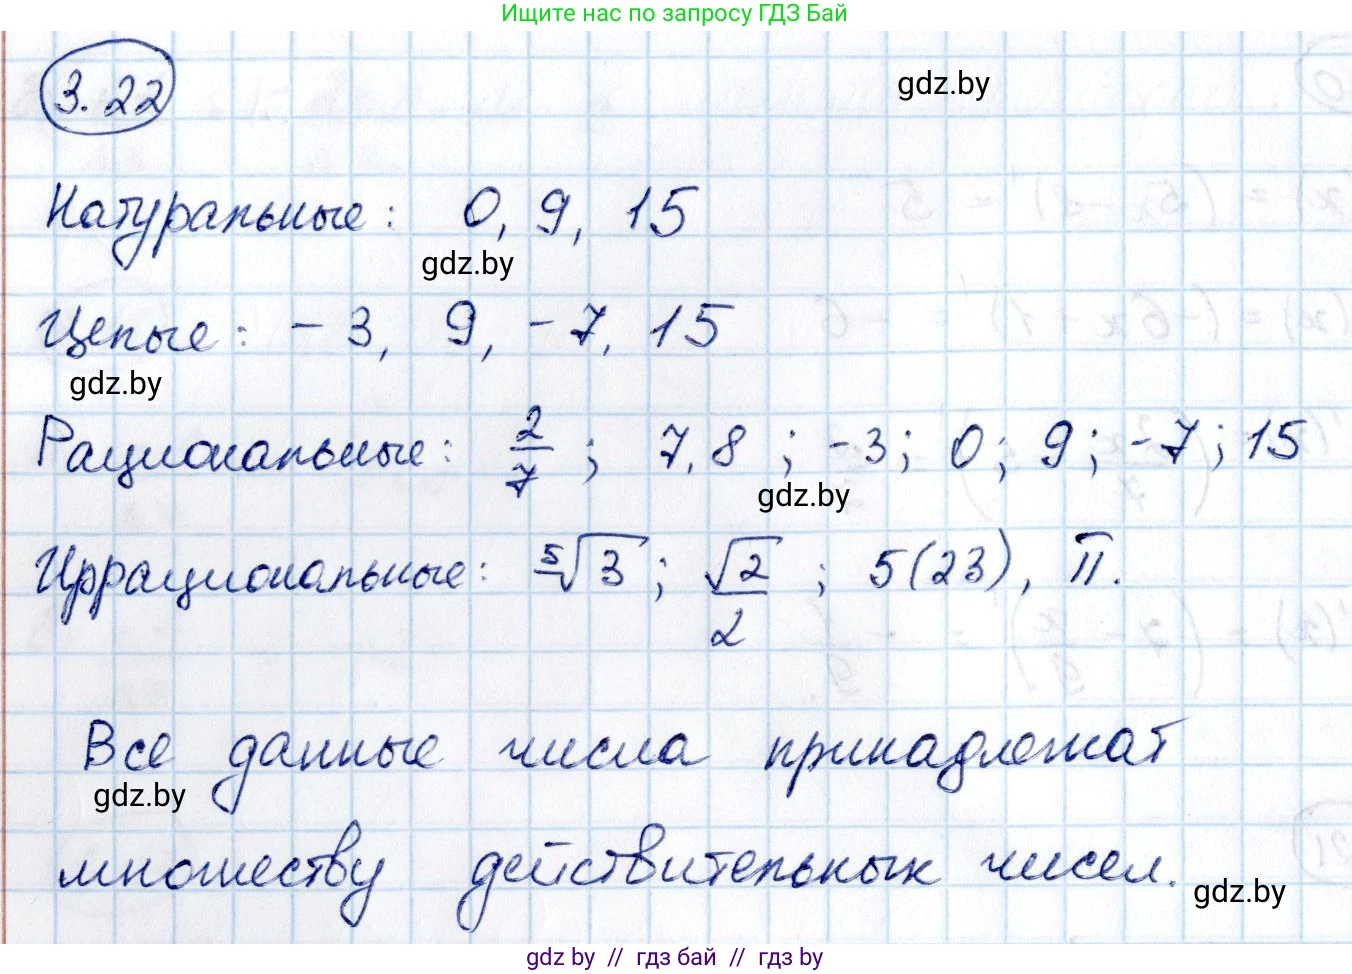 Ищите нас по запросу ГДЗ Бай
3.22
gdz.by
Натуральные: 0, 9, 15
gdz.by
Целые: -3, 9, -7, 15
gdz.by
Рациональные: 2/7; 7,8; -3; 0; 9; -7; 15
gdz.by
Иррациональные: ⁵√3; √2/2; 5(23), π.
Все данные числа принадлежат
gdz.by
множеству действительных чисел.
gdz.by
gdz.by // гдз бай // гдз by